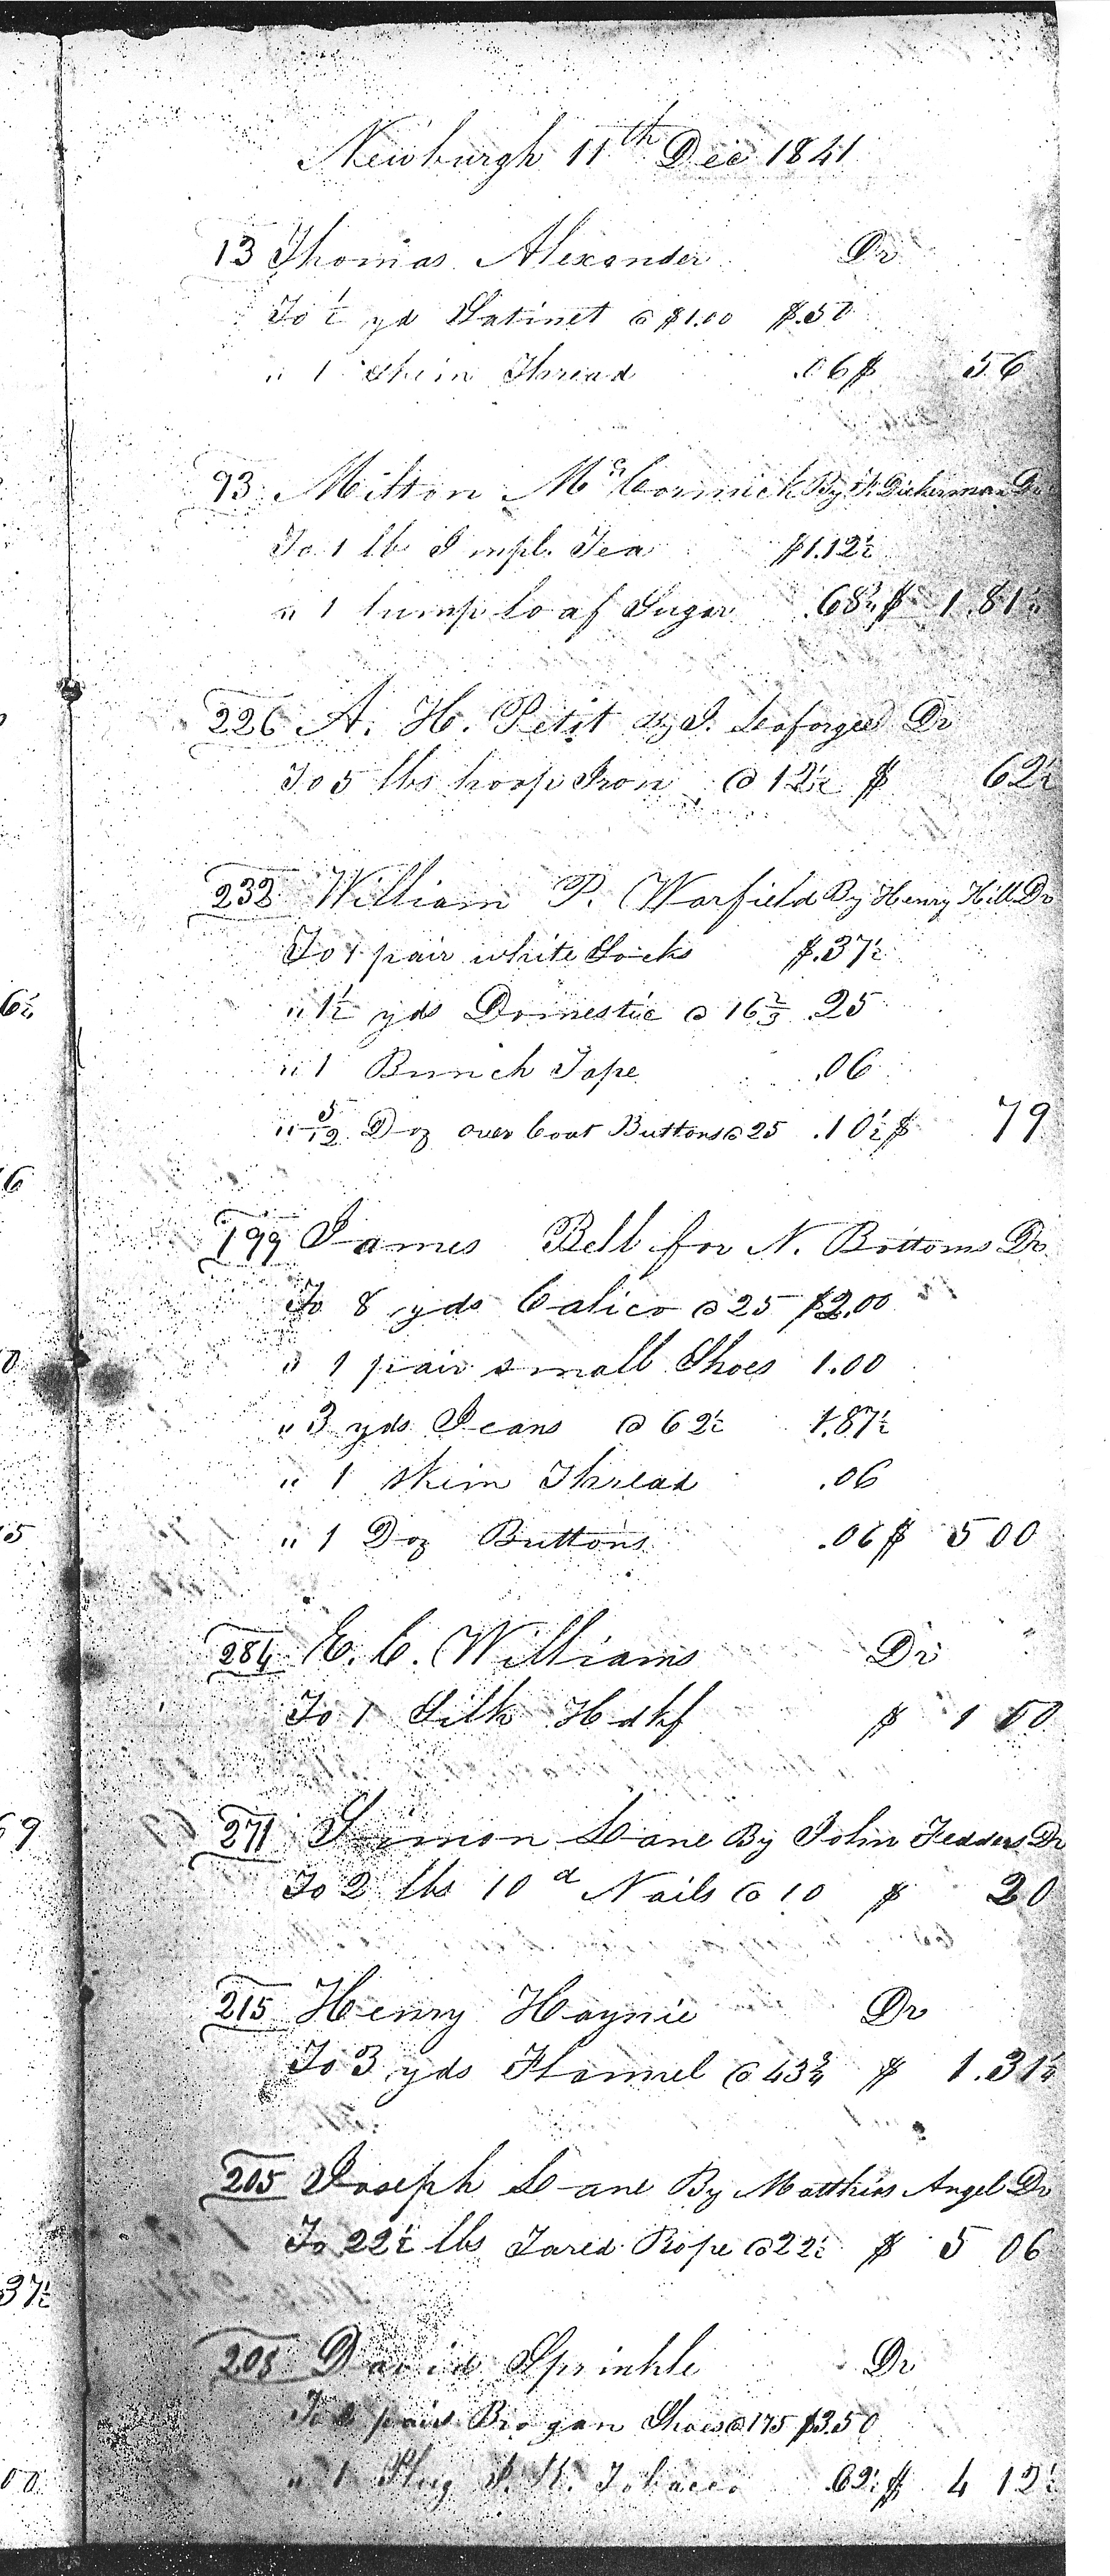 Newburgh 11th Dec 1841
13 Thomas Alexander Dr
To ½ yd Satinet @ $1.00 $.50
" 1 Skein Thread .06 $ 56
93 Milton McCormick By Dickerman Dr
To 1 lb Impl. Tea $1.12½
" 1 lump Loaf Sugar .68¾ $ 1.81¼
226 A. H. Petit By I. Leaforgee Dr
To 5 lbs hoop Iron @ 12½ $ 62½
232 William P. Warfield By Henry Hill Dr
To 1 pair white Socks $.37½
" 1½ yds Domestic @ 16⅔ .25
" 1 Bunch Tape .06
" 5/12 Doz over Coat Buttons @ 25 .10½ $ 79
199 James Bell for N. Bottoms Dr
To 8 yds Calico @ 25 $2.00
" 1 pair small Shoes 1.00
" 3 yds Jeans @ 62½ 1.87½
" 1 skein Thread .06
" 1 Doz Buttons .06 $ 5 00
284 E. C. Williams Dr
To 1 Silk Hdkf $ 1 50
271 Simon Lane By John Fedders Dr
To 2 lbs 10d Nails @ 10 $ 20
215 Henry Haynie Dr
To 3 yds Flannel @ 43¾ $ 1.31¼
205 Joseph Lane By Matthias Angel Dr
To 22½ lbs Tared Rope @ 22½ $ 5 06
208 David Sprinkle Dr
To 2 pair Brogan Shoes @ 175 $3.50
" 1 Plug Tobacco .62½ $ 4 12½